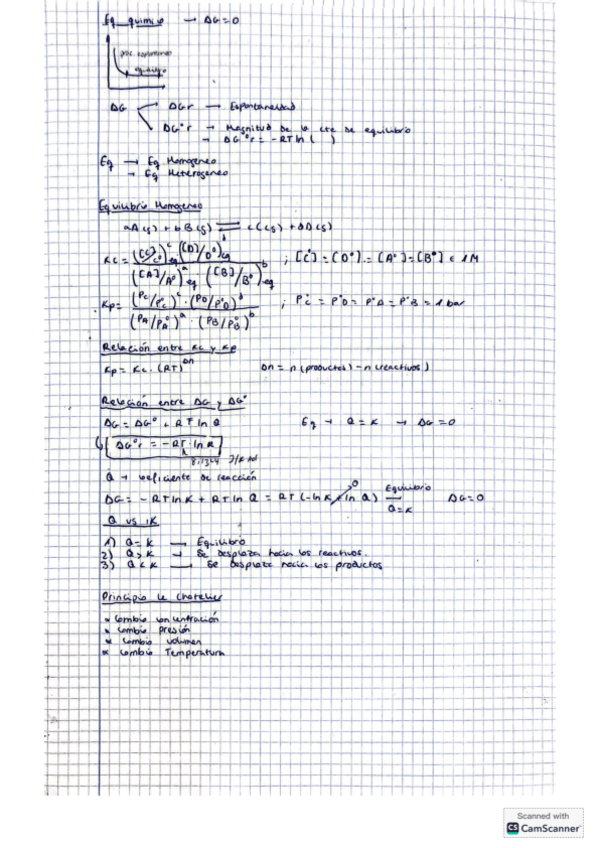 Eq químico → ΔG=0
proc. espontaneo
equilibrio
ΔG
ΔGr → Espontaneidad
ΔG°r → Magnitud de la cte de equilibrio
→ ΔG°r = -RT ln ( )
Eq → Eq Homogeneo
→ Eq Heterogeneo
Equilibrio Homogeneo
aA(g) + bB(g) ⇌ cC(g) + dD(g)
Kc = ([C]/C°)^c eq ([D]/D°)^d eq / ([A]/A°)^a eq · ([B]/B°)^b eq ; [C°] = [D°] = [A°] = [B°] = 1M
Kp = (Pc/P°c)^c · (PD/P°D)^d / (PA/P°A)^a · (PB/P°B)^b ; P°c = P°D = P°A = P°B = 1 bar
Relación entre Kc y Kp
Kp = Kc · (RT)^Δn Δn = n (productos) - n (reactivos)
Relación entre ΔG y ΔG°
ΔG = ΔG° + RT ln Q Eq → Q = K → ΔG = 0
ΔG°r = -RT · ln K
Q → coeficiente de reacción
ΔG = -RT ln K + RT ln Q = RT (-ln K + ln Q) 0 Equilibrio Q=K ΔG=0
Q vs K
1) Q = K → Equilibrio
2) Q > K → Se desplaza hacia los reactivos.
3) Q < K → Se desplaza hacia los productos
Principio Le Chatelier
* Cambio concentración
* Cambio presión
* Cambio volumen
* Cambio Temperatura
Scanned with
CS CamScanner